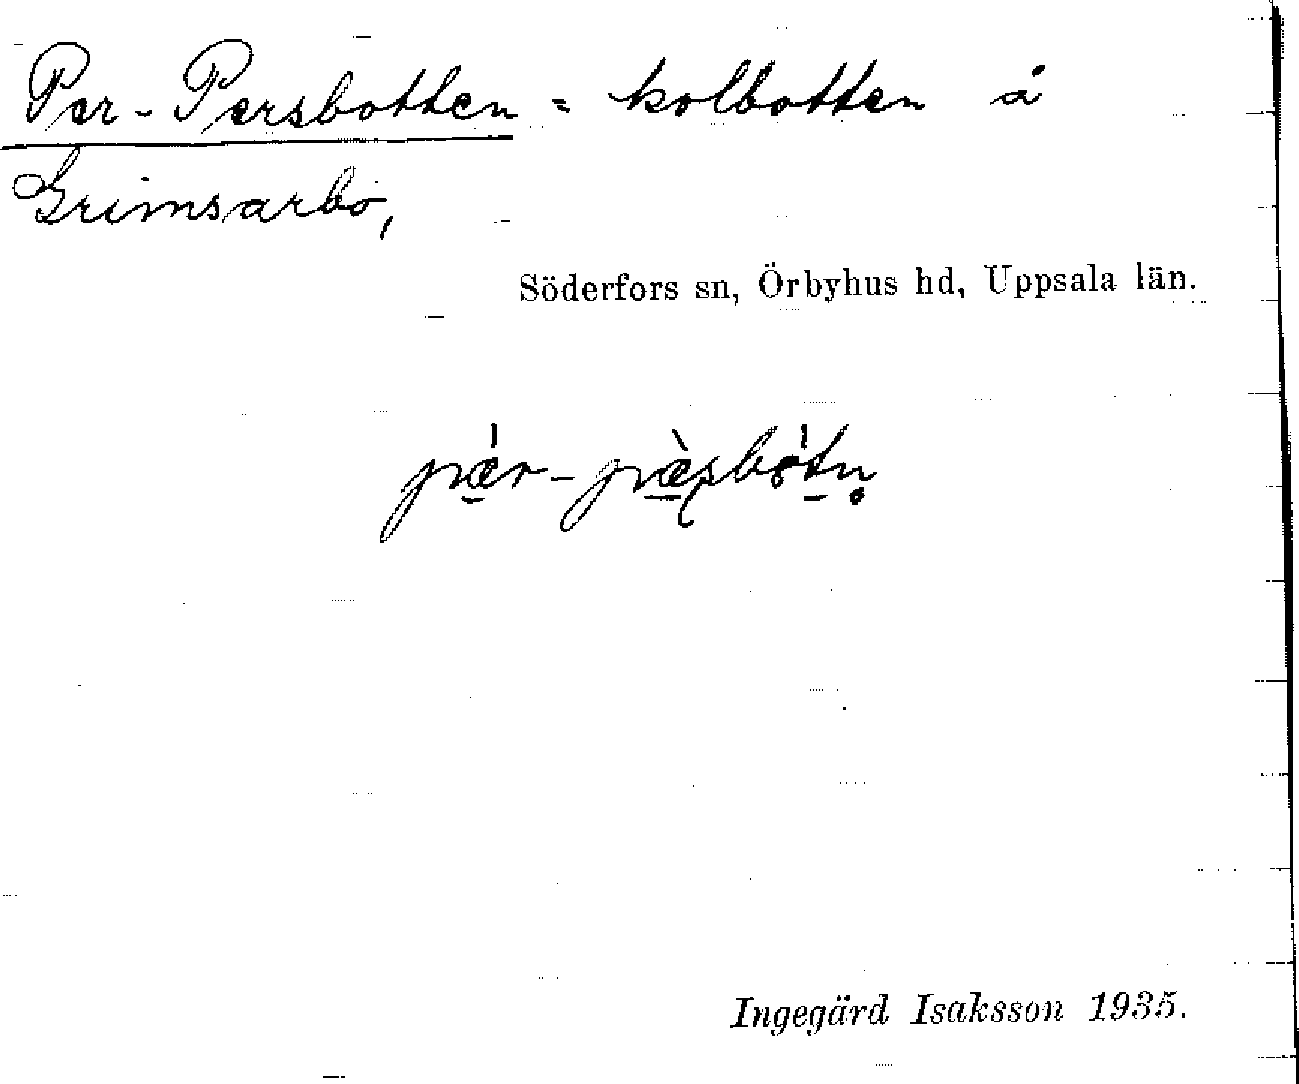 Per-Persbotten = kolbotten å
Grimsarbo,
Söderfors sn, Örbyhus hd, Uppsala län.
pæ̀r-pæ̀sbòtn̥
Ingegärd Isaksson 1935.